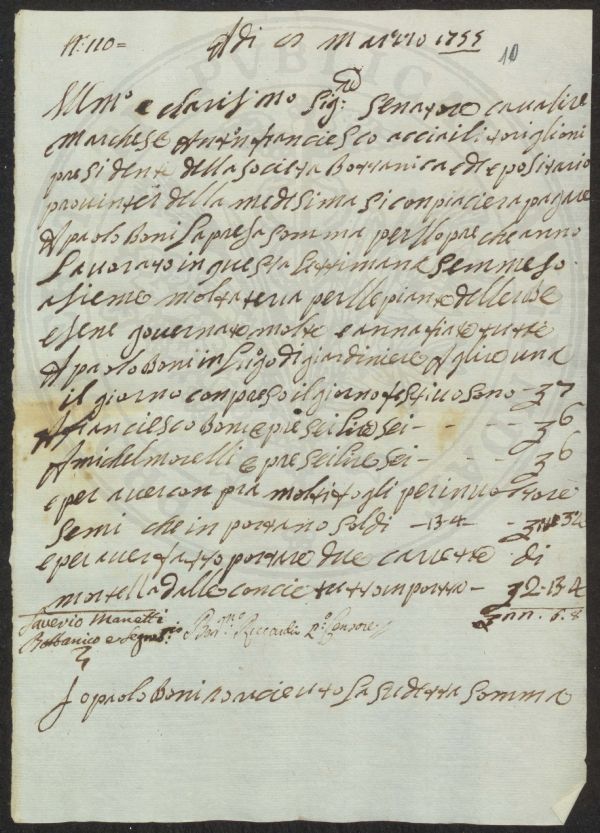 N: 110 =
Adi marzo 1755
10
Illmo e clarisimo Sig: Senatore cavaliere
Marchese Antn francesco acciaili toriglioni
presidente della societa Bottanica e depositario
della medesima si conpiacera pagare
A paolo Boni La presa somma per llopre che anno
Lavorato in questa settimana Semmeso
asieme molta tera per lle piante dellerbe
e sene governate molte e annafiate tutte
A paolo Boni in Luogo di giardiniere A lire una
il giorno conpreso il giorno festivo sono - 7
A francesco Boni opre sei lire sei - - - - - 6
A michel morelli opre sei lire sei - - - - 6
e per aver conpra molti fogli per involtore
Semi che in portano soldi - 13 4 -
e per aver fatto portare due carette di
mortella dalle concie tutto importa - 2.13.4
Saverio Manetti
Bottanico e Segret:rio Riccardi Censore
Io paolo Boni o riceuto La sudetta somma